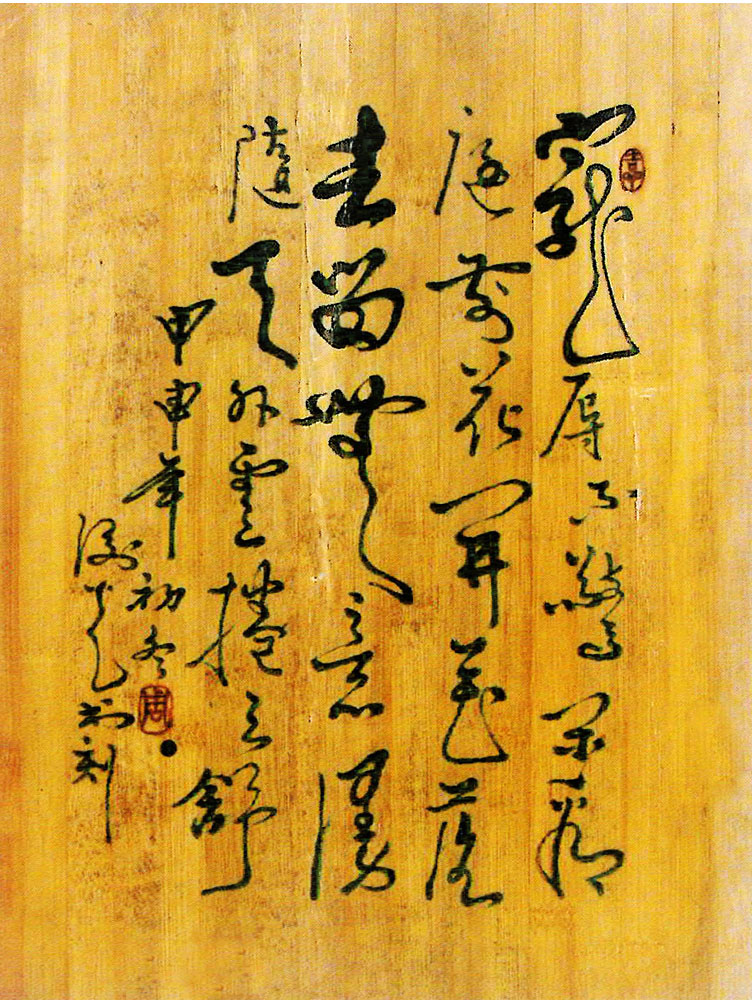 寵辱不驚閑看
庭前花開花落
去留無意漫
隨天外雲捲云舒
甲申年初冬
刻
周